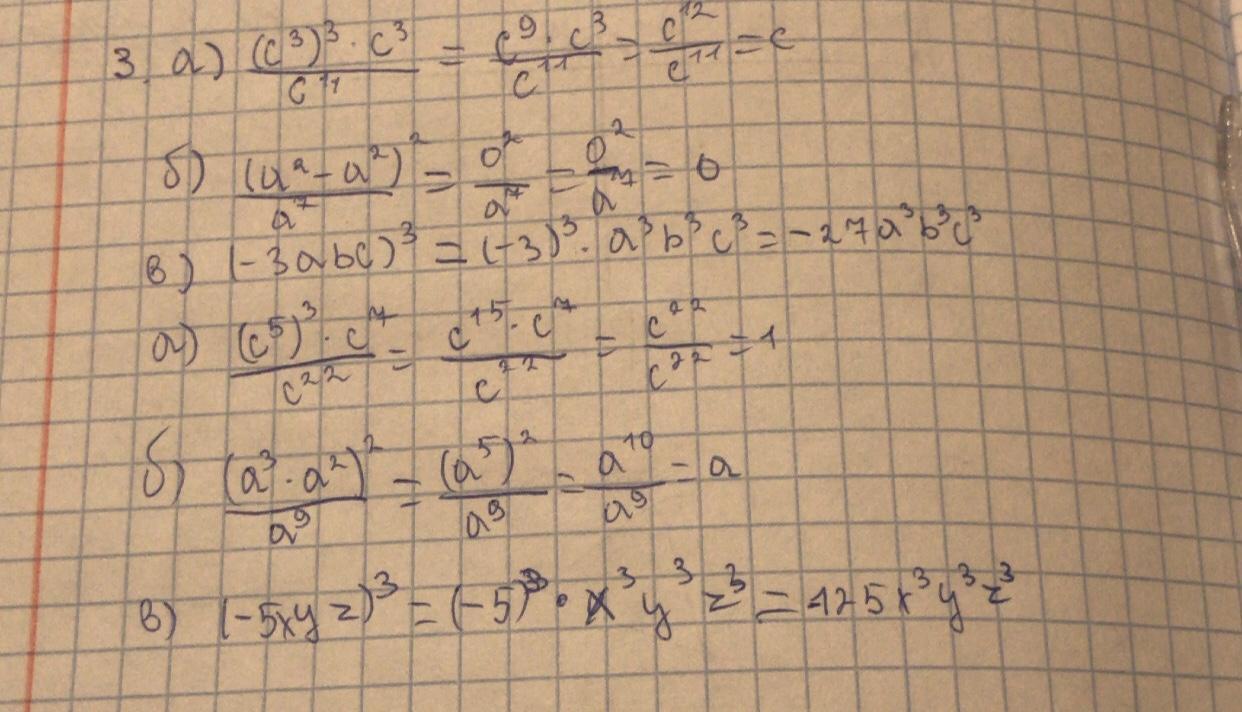 3. а) (c³)³ · c³ / c¹¹ = c⁹ · c³ / c¹¹ = c¹² / c¹¹ = c
б) (a² - a²)² / a⁷ = 0² / a⁷ = 0² / a⁷ = 0
в) (-3abc)³ = (-3)³ · a³b³c³ = -27a³b³c³
а) (c⁵)³ · c⁷ / c²² = c¹⁵ · c⁷ / c²² = c²² / c²² = 1
б) (a³ · a²)² / a⁹ = (a⁵)² / a⁹ = a¹⁰ / a⁹ = a
в) (-5xyz)³ = (-5)³ · x³y³z³ = 125x³y³z³